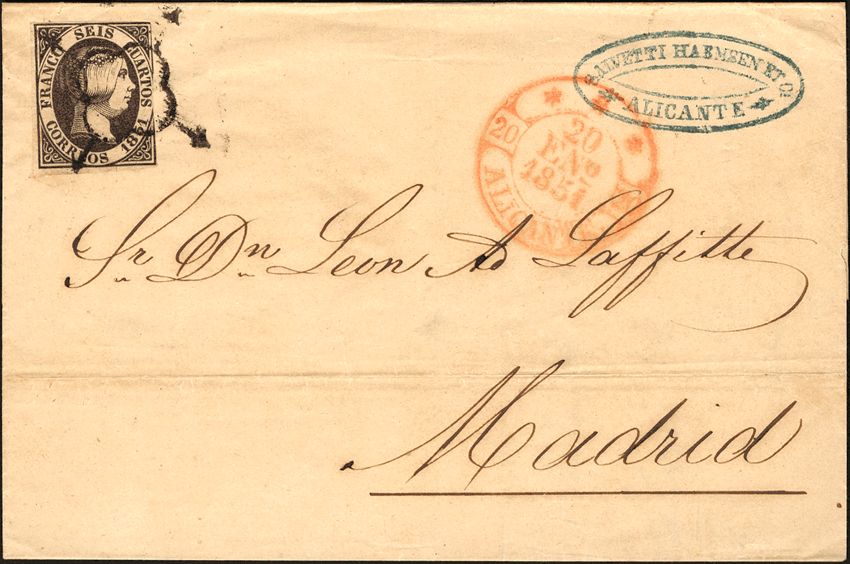 FRANCO SEIS CUARTOS
CORREOS 1851
HAENSEN ET Cª
ALICANTE
20
20
ENº
1851
20
ALICANTE
Sr. Dn. Leon Ad Laffitte
Madrid